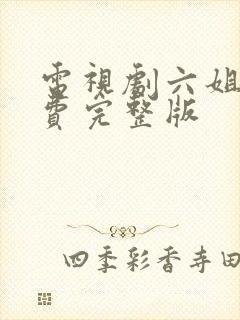 電視劇六姐
費完整版
四季彩香寺田